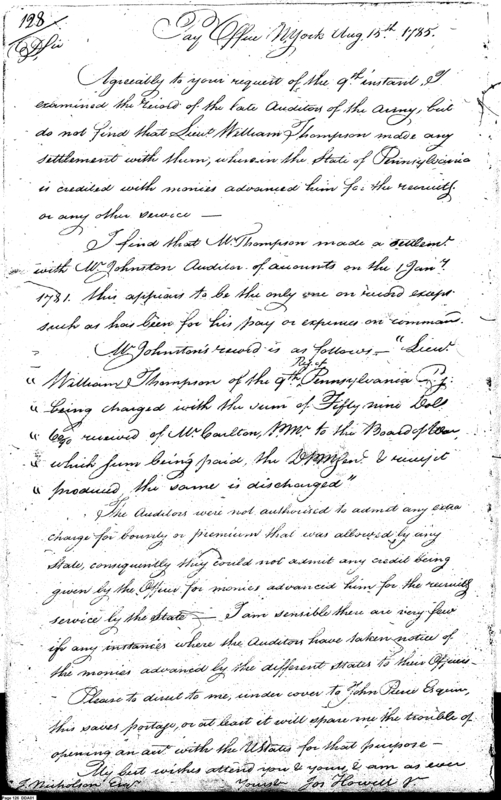 128
Pay Office N York Aug 15th 1785.
D Sir
Agreeably to your request of the 9th instant, I
examined the record of the late Auditors of the army, but
do not find that Lieut William Thompson made any
settlement with them, wherein the State of Pennsylvania
is credited with monies advanced him for the recruitg
or any other service —
I find that Mr Thompson made a settlemt
with Mr Johnston Auditor of accounts on the 1 Jany
1781. this appears to be the only one on record except
such as has been for his pay or expences on command.
Mr Johnston's record is as follows — "Lieut
" William Thompson of the 9th Pennsylvania Reg:
" being charged with the sum of Fifty nine Doll
" received of Mr Carlton, PMr to the Board of War,
" which sum being paid, the & receipt
" produced, the same is discharged"
The Auditors were not authorised to admit any extra
charge for bounty or premium that was allowed by any
State, consequently they could not admit any credit being
given by the Officer for monies advanced him for the recruitg
service by the State — I am sensible there are very few
if any instances where the Auditors have taken notice of
the monies advanced by the different states to their Officers
Please to direct to me, under cover to John Pierce Esquire,
this saves postage, or at least it will spare me the trouble of
opening an acct with the UStates for that purpose —
My best wishes attend you & yours, & am as ever
J. Nicholson Esqr Yours Jos Howell Jr
Page 128